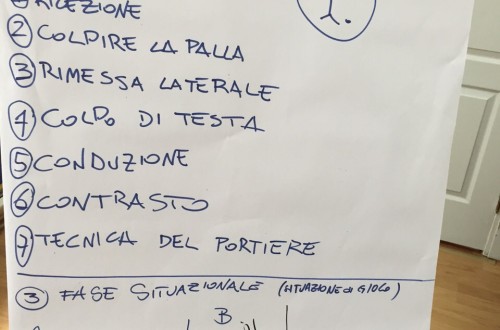 ① RICEZIONE
② COLPIRE LA PALLA
③ RIMESSA LATERALE
④ COLPO DI TESTA
⑤ CONDUZIONE
⑥ CONTRASTO
⑦ TECNICA DEL PORTIERE
③ FASE SITUAZIONALE (SITUAZIONE di GIOCO)
B